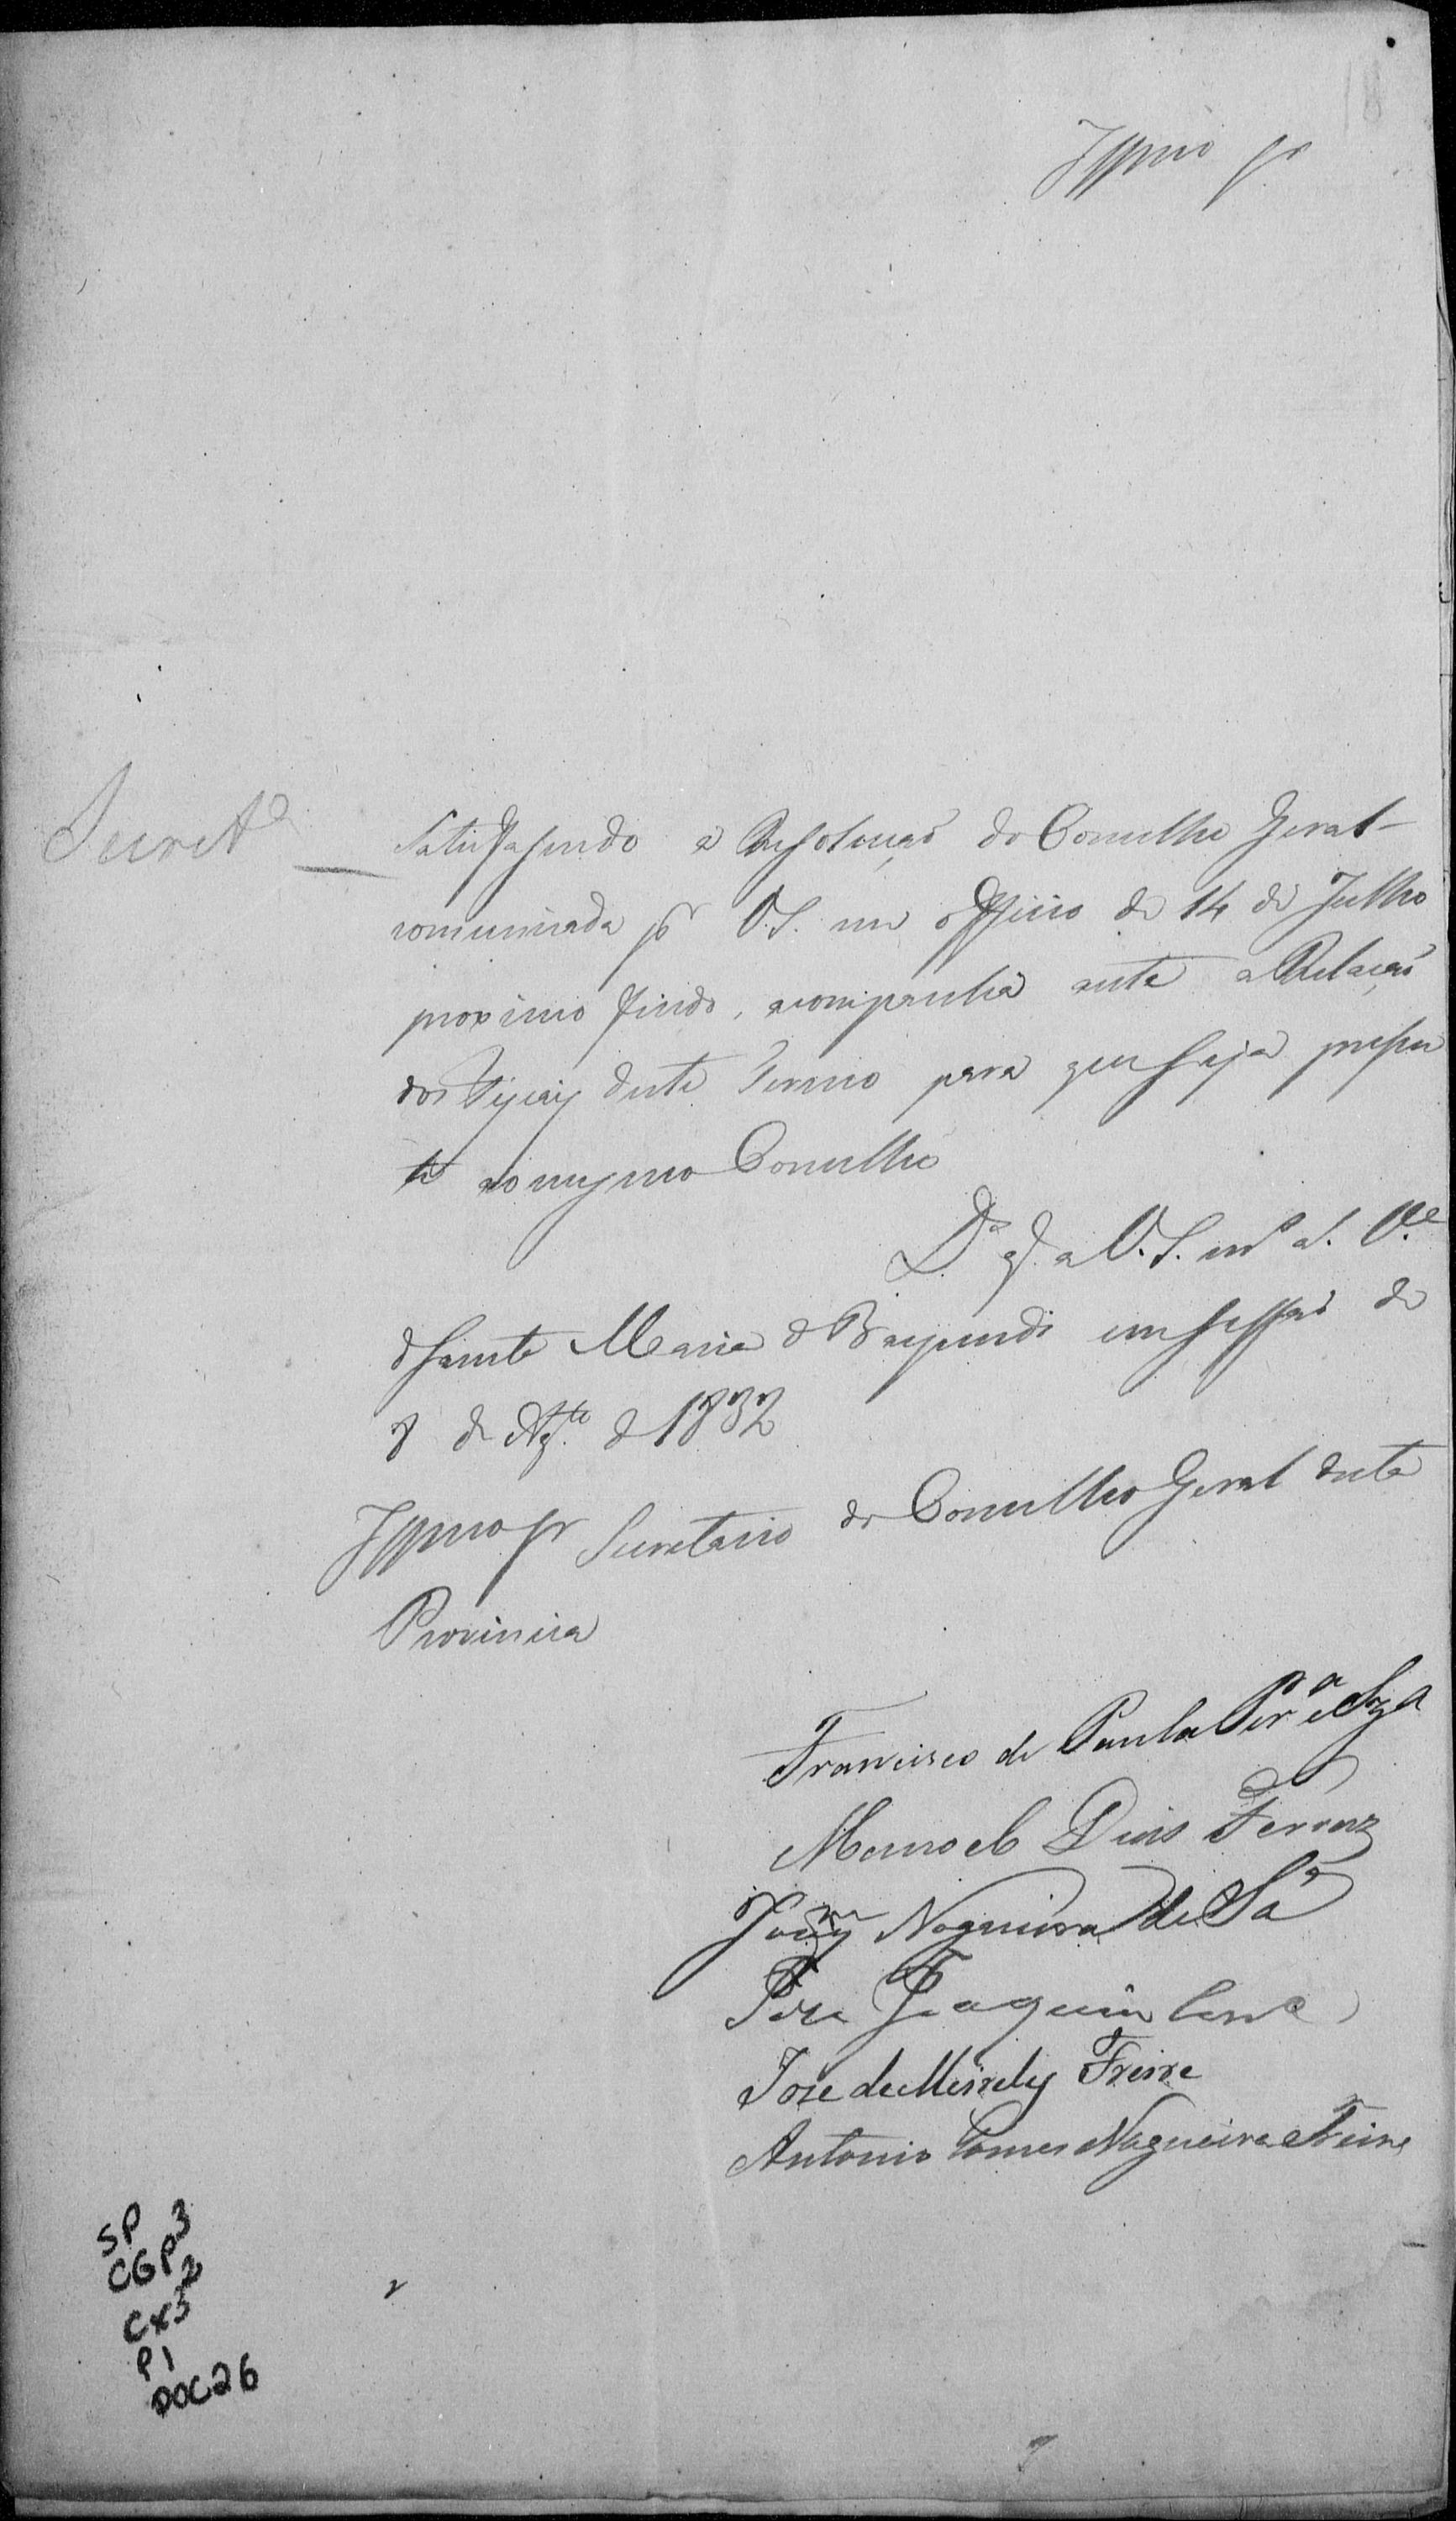 18
Illmo Sr
Secretª
Satisfasendo a Resoluçaõ do Conselho Geral
comunicada pr V.S. em officio de 14 de Julho
proximo findo, acompanha esta a Relaçaõ
dos deste Termo para que seja presen
te ao mesmo Conselho
Ds gde a V.S. ms as. Vª
de Santa Maria de Baependi em Sessaõ de
8 de Agto de 1832
Illmo Sr Secretario do Conselho Geral desta
Provincia
Francisco de Paula Perª e Sza
Manoel Dias Ferraz
Joaqm Nogueira de Sá
Joaquim
Jose de Meirelles Freire
Antonio Gomes Nogueira Freire
SP
CGP3
Cx32
P1
DOC26